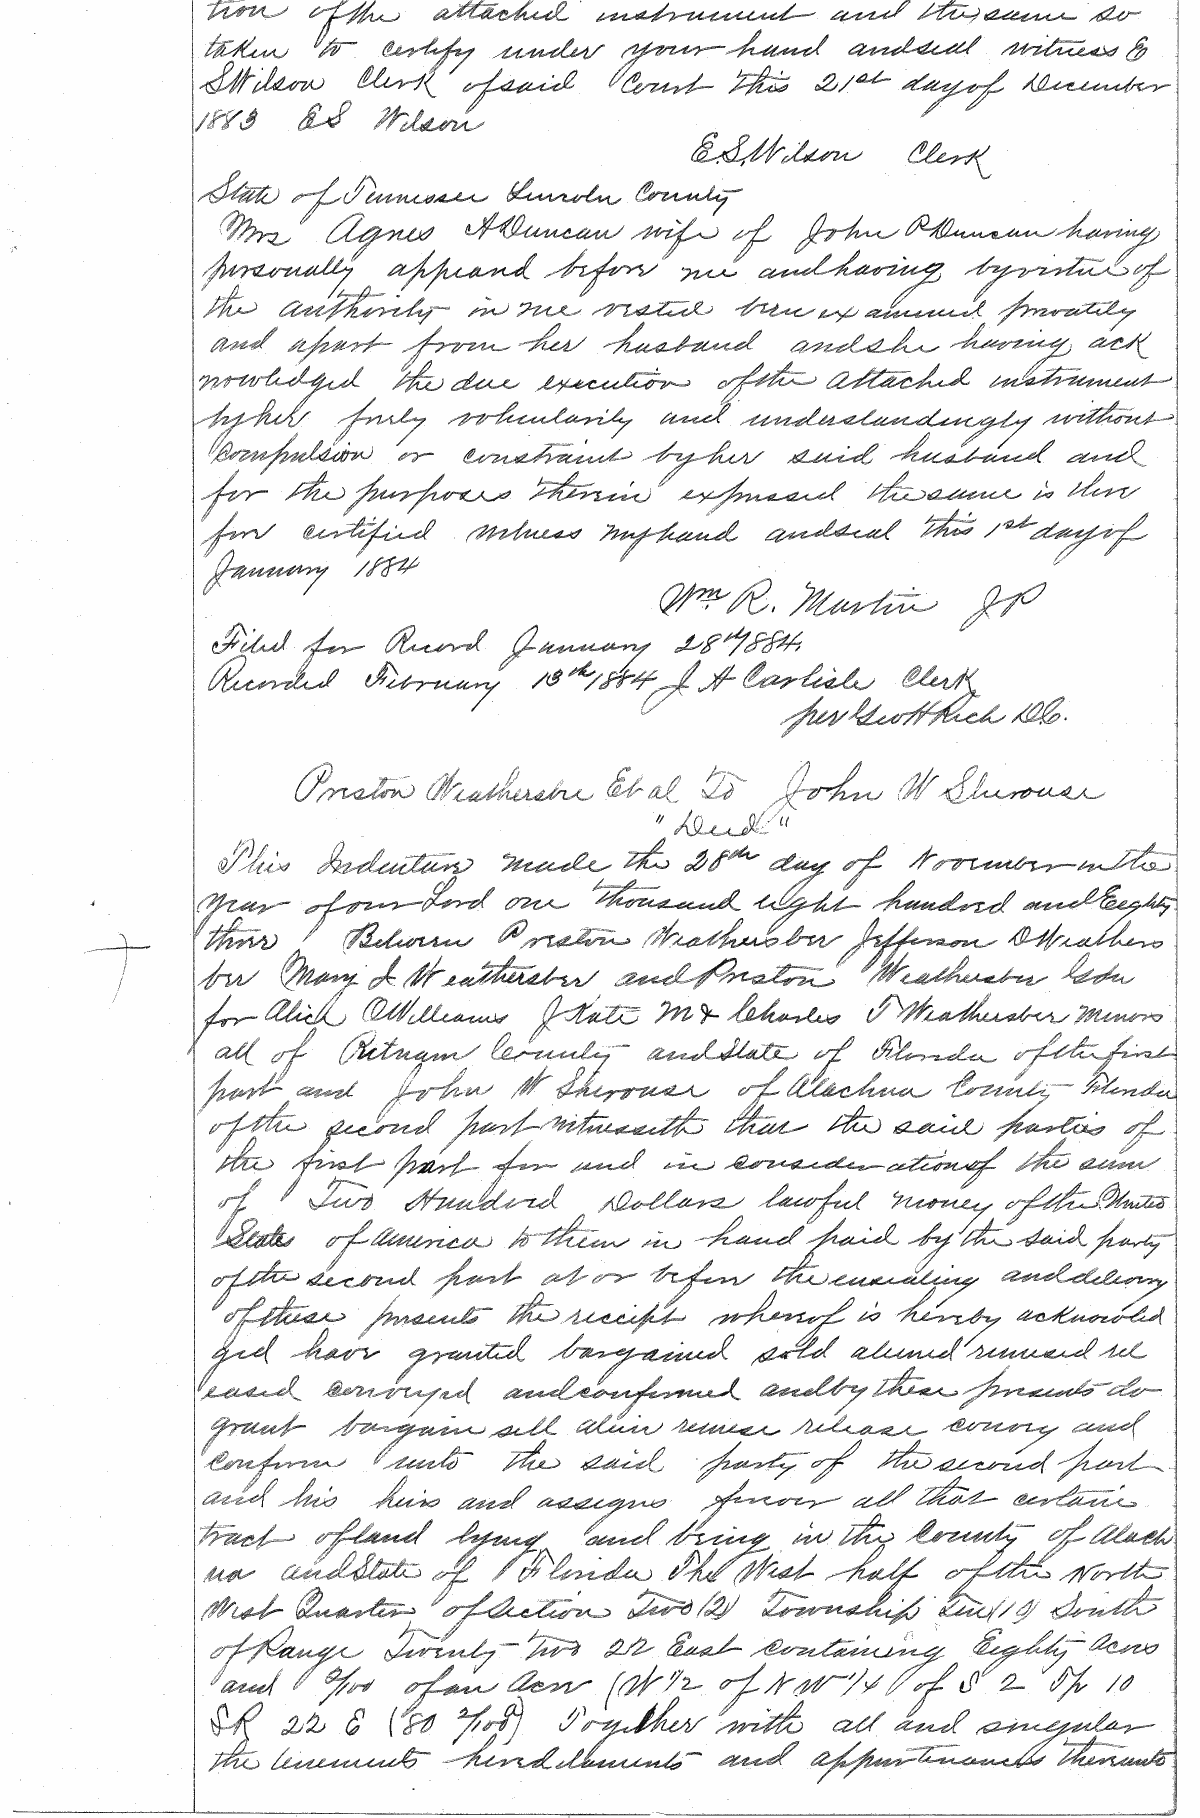 tion of the attached instrument and the same so
taken to certify under your hand and seal witness E
S Wilson Clerk of said Court this 21st day of December
1883 E S Wilson
E. S. Wilson Clerk
State of Tennessee Lincoln County
Mrs Agnes A Duncan wife of John P Duncan having
personally appeard before me and having by virtue of
the authority in me vested been examined privately
and apart from her husband and she having ack
nowledged the due execution of the attached instrument
by her freely voluntarily and understandingly without
compulsion or constraint by her said husband and
for the purposes therein expressed the same is there
fore certified witness my hand and seal this 1st day of
January 1884
Wm R. Martin J P
Filed for Record January 28th 1884.
Recorded February 13th 1884 J A Carlisle Clerk
per Geo H Rich D.C.
Preston Weathersbee Et al To John W Sherouse
"Deed"
This Indenture made the 28th day of November in the
year of our Lord one thousand eight hundred and Eeighty
three Between Preston Weathersbee Jefferson D Weathers
bee Mary J Weathersbee and Preston Weathersbee Gdn
for Alice O Williams J Kate M & Charles T Weathersbee minors
all of Putnam County and State of Florida of the first
part and John W Sherouse of Alachua County Florida
of the second part witnesseth that the said parties of
the first part for and in consideration of the sum
of Two Hundred Dollars lawful money of the United
States of America to them in hand paid by the said party
of the second part at or before the ensealing and delivery
of these presents the receipt whereof is hereby acknowled
ged have granted bargained sold aliened remised rel
eased conveyed and confirmed and by these presents do
grant bargain sell alien remise release convey and
confirm unto the said party of the second part
and his heirs and assigns forever all that certain
tract of land lying and being in the County of Alach
ua and State of Florida The West half of the North
West Quarter of Section Two (2) Township Ten (10) South
of Range Twenty Two 22 East containing Eighty Acres
and 2/100 of an Acre (W 1/2 of N W 1/4 of S 2 Tp 10
S R 22 E (80 2/100) Together with all and singular
the tenements hereditaments and appurtenances thereunto